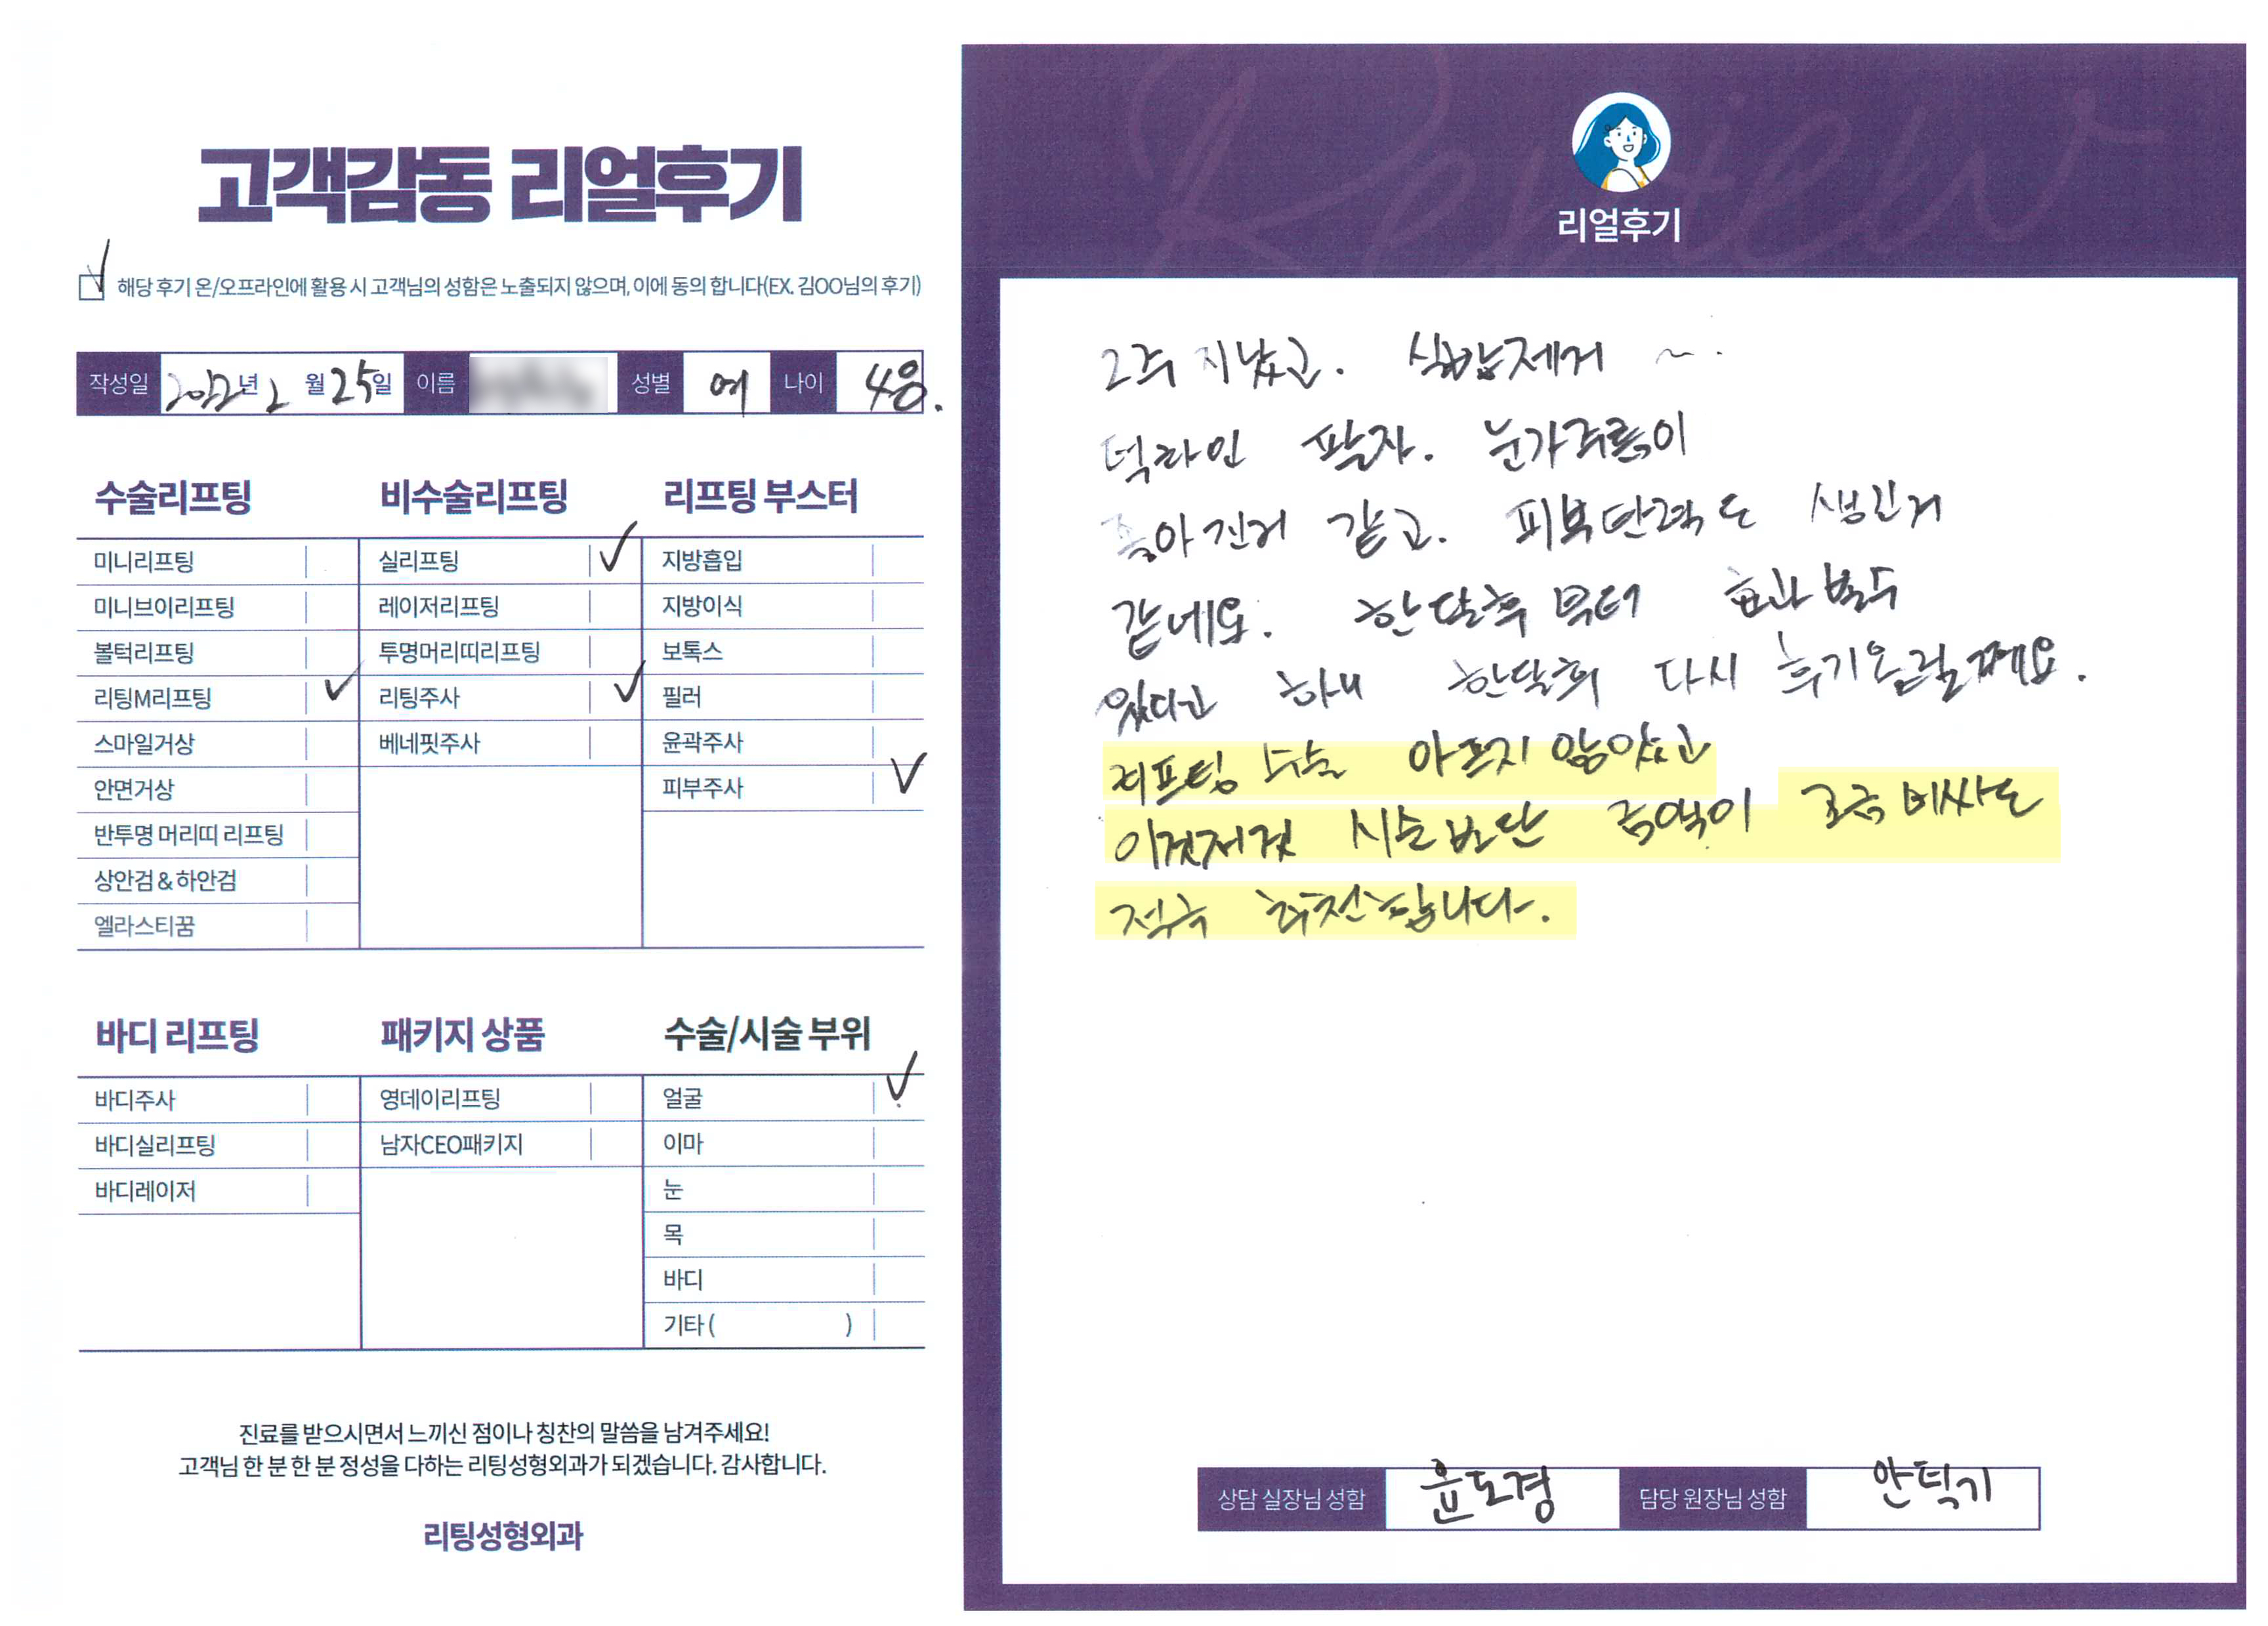 고객감동 리얼후기
해당 후기 온/오프라인에 활용 시 고객님의 성함은 노출되지 않으며, 이에 동의 합니다(EX. 김OO님의 후기)
작성일 2022년 2월 25일 이름 성별 여 나이 48.
수술리프팅 비수술리프팅 리프팅 부스터
미니리프팅 실리프팅 지방흡입
미니브이리프팅 레이저리프팅 지방이식
볼턱리프팅 투명머리띠리프팅 보톡스
리팅M리프팅 리팅주사 필러
스마일거상 베네핏주사 윤곽주사
안면거상 피부주사
반투명 머리띠 리프팅
상안검 & 하안검
엘라스티꿈
바디 리프팅 패키지 상품 수술/시술 부위
바디주사 영데이리프팅 얼굴
바디실리프팅 남자CEO패키지 이마
바디레이저 눈
목
바디
기타 ( )
진료를 받으시면서 느끼신 점이나 칭찬의 말씀을 남겨주세요!
고객님 한 분 한 분 정성을 다하는 리팅성형외과가 되겠습니다. 감사합니다.
리팅성형외과
Review
리얼후기
2주 지났고. 실밥제거 ~.
턱라인 팔자. 눈가주름이
좋아진거 같고. 피부탄력도 생긴거
같네요. 한달후 부터 효과 볼수
있다고 하니 한달후 다시 후기올릴께요.
리프팅 수술 아프지 않았고
이것저것 시술보단 금액이 조금 비싸도
적극 추천합니다.
상담 실장님 성함 윤도경 담당 원장님 성함 안틱기